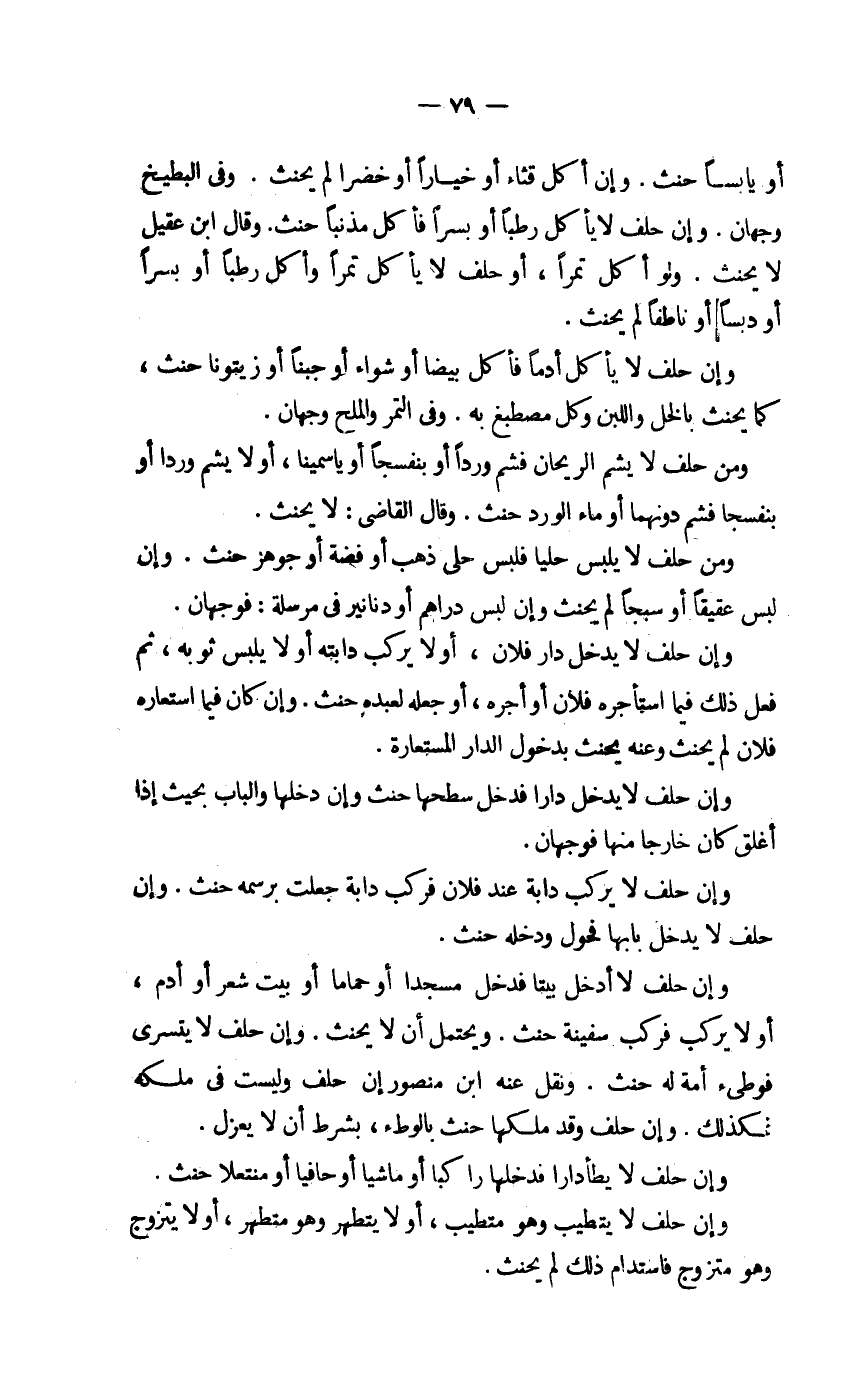 — ٧٩ —
أو يابســاً حنث . وإن أكل قثاء أو خيــاراً أو خضرا لم يحنث . وفى البطيـخ
وجهان . وإن حلف لايأكل رطباً أو بسراً فأكل مذنباً حنث. وقال ابن عقيل
لا يحنث . ولو أكل تمراً ، أو حلف لا يأكل تمراً وأكل رطباً أو بسراً
أو دبساً أو ناطفاً لم يحنث .
وإن حلف لا يأكل أدماً فأكل بيضا أو شواء أو جبناً أو زيتونا حنث ،
كما يحنث بالخل واللبن وكل مصطبغ به . وفى التمر والملح وجهان .
ومن حلف لا يشم الريحان فشم ورداً أو بنفسجاً أو ياسمينا ، أو لا يشم وردا أو
بنفسجا فشم دونهما أو ماء الورد حنث . وقال القاضى : لا يحنث .
ومن حلف لا يلبس حليا فلبس حلى ذهب أو فضة أو جوهر حنث . وإن
لبس عقيقاً أو سبجاً لم يحنث وإن لبس دراهم أو دنانير فى مرسلة : فوجهان .
وإن حلف لا يدخل دار فلان ، أو لا يركب دابته أو لا يلبس ثوبه ، ثم
فعل ذلك فيما استأجره فلان أو أجره ، أو جعله لعبده حنث . وإن كان فيما استعاره
فلان لم يحنث وعنه يحنث بدخول الدار المستعارة .
وإن حلف لايدخل دارا فدخل سطحها حنث وإن دخلها والباب بحيث إذا
أغلق كان خارجا منها فوجهان .
وإن حلف لا يركب دابة عند فلان فركب دابة جعلت برسمه حنث . وإن
حلف لا يدخل بابها فحول ودخله حنث .
وإن حلف لا أدخل بيتا فدخل مسجدا أو حماما أو بيت شعر أو أدم ،
أو لا يركب فركب سفينة حنث . ويحتمل أن لا يحنث . وإن حلف لا يتسرى
فوطىء أمة له حنث . ونقل عنه ابن منصور إن حلف وليست فى ملـكه
فـكذلك . وإن حلف وقد ملـكها حنث بالوطء ، بشرط أن لا يعزل .
وإن حلف لا يطأ دارا فدخلها راكبا أو ماشيا أو حافيا أو منتعلا حنث .
وإن حلف لا يتطيب وهو متطيب ، أو لا يتطهر وهو متطهر ، أو لا يتزوج
وهو متزوج فاستدام ذلك لم يحنث .